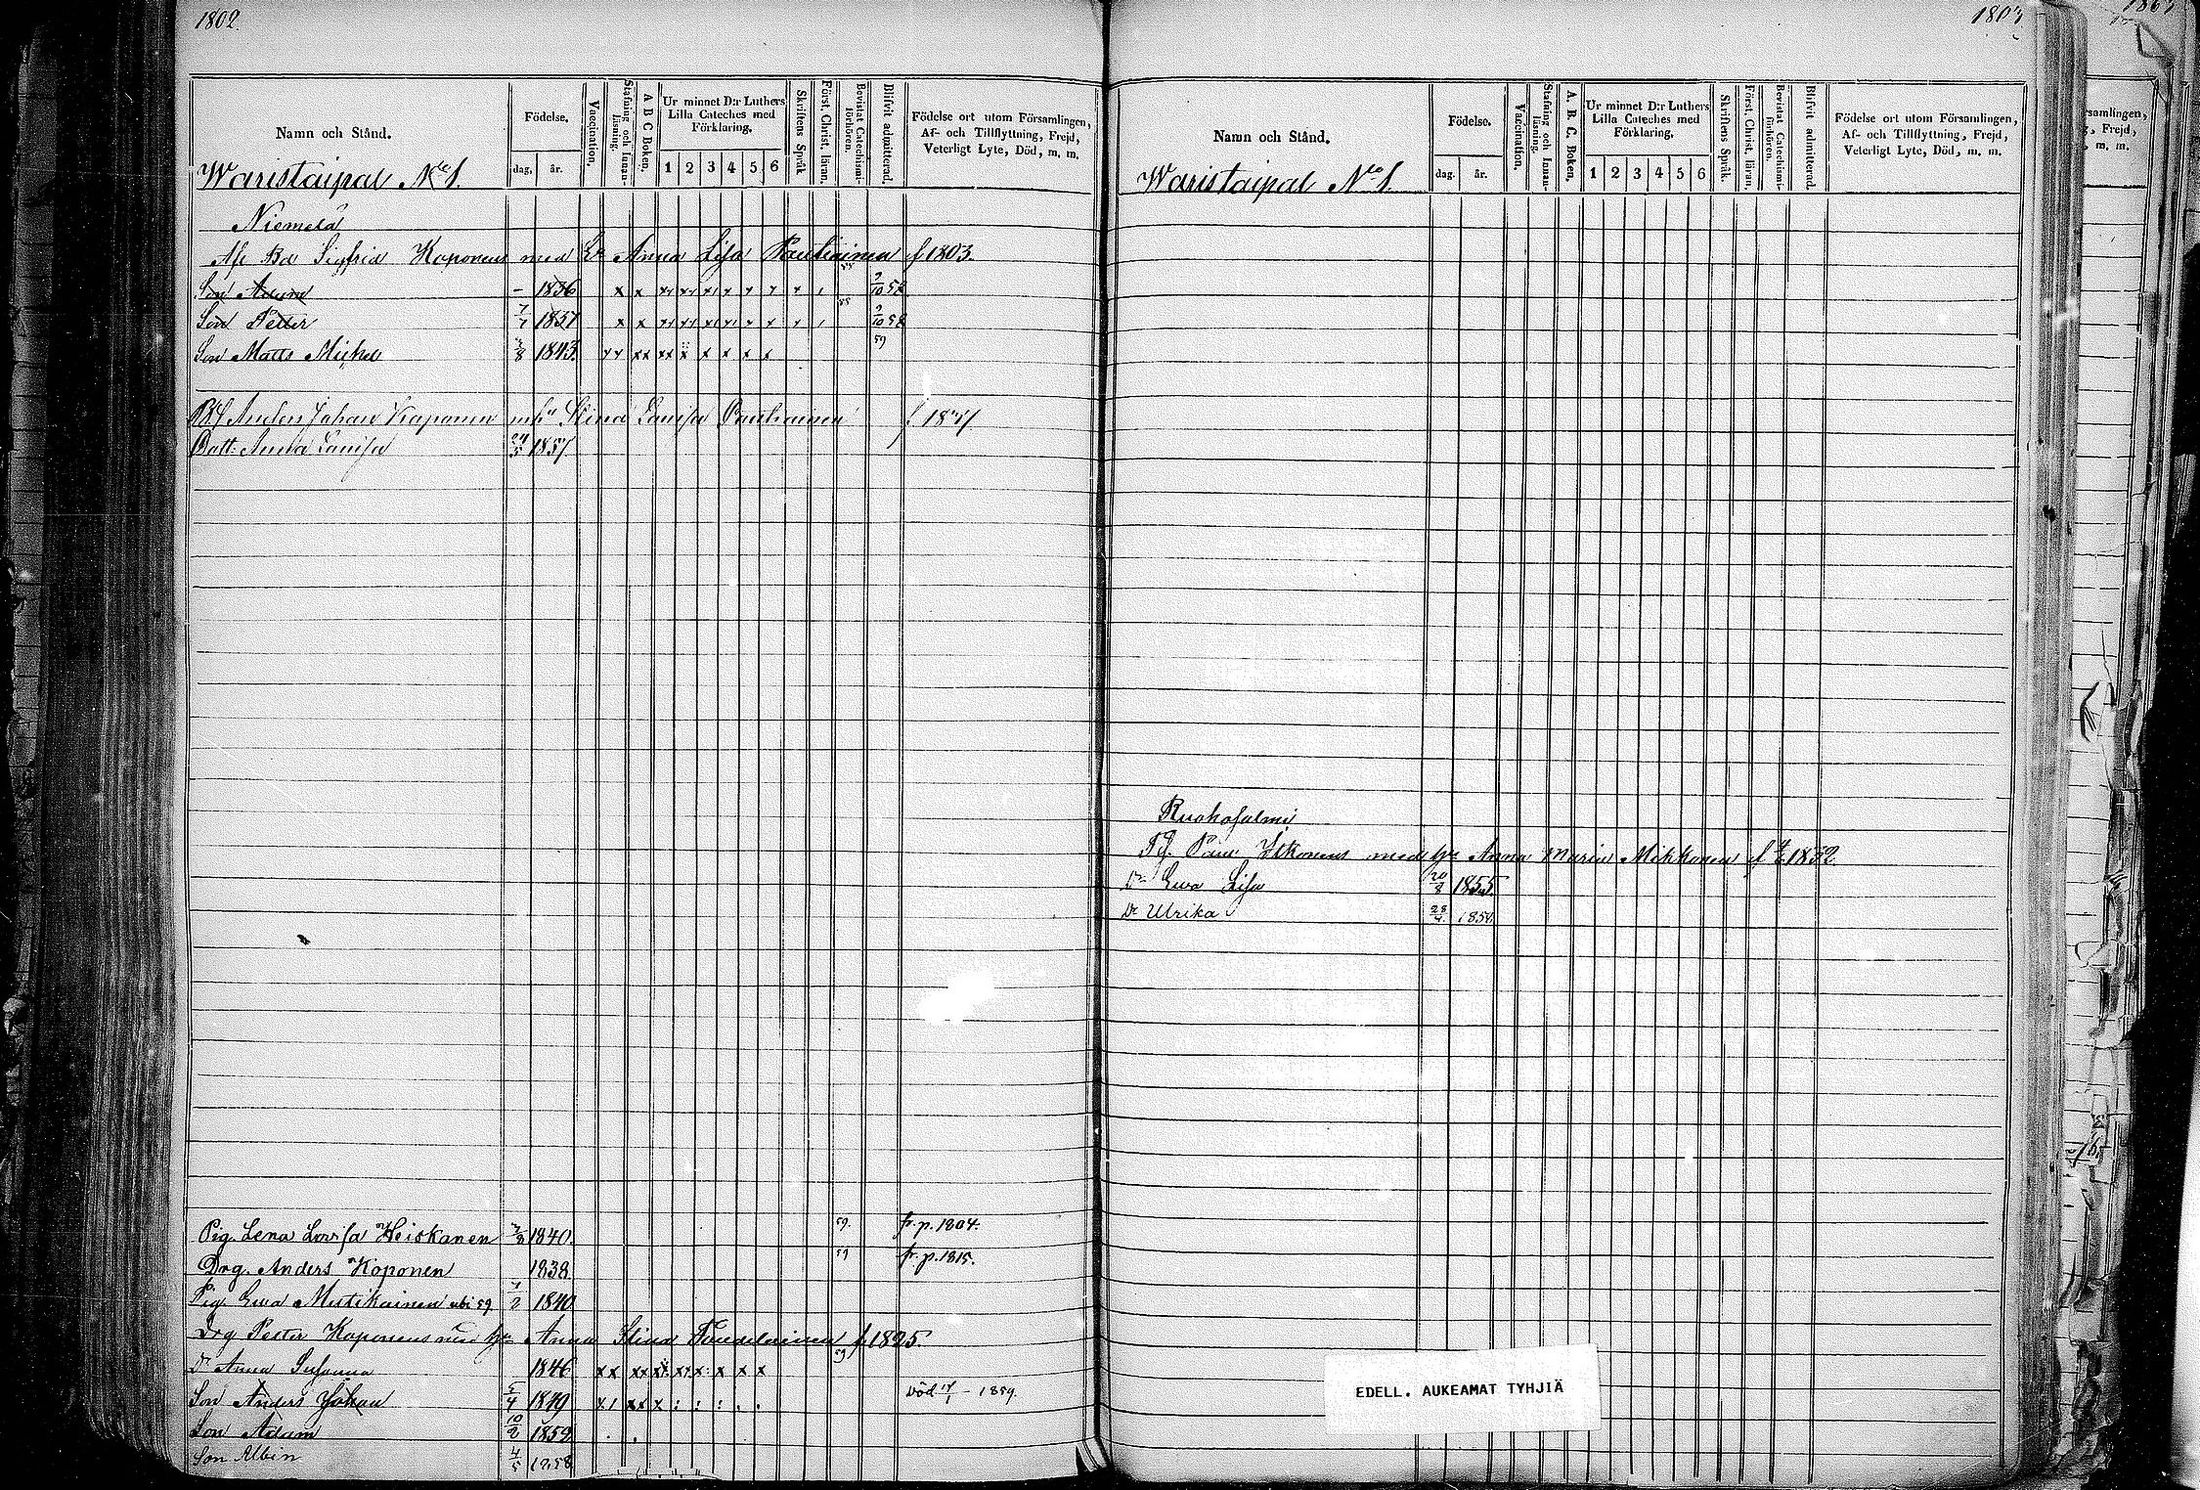 1802.
Namn och Stånd.
Födelse.
dag. år.
Vaccination.
Stafning och Innanläsning.
A B C Boken.
Ur minnet D:r Luthers Lilla Cateches med Förklaring.
1 2 3 4 5 6
Skriftens Språk
Först. Christ. läran.
Bevistat Catechismiförhören.
Blifvit admitterad.
Födelse ort utom Församlingen, Af- och Tillflyttning, Frejd, Veterligt Lyte, Död, m. m.
Waristaipal No 1.
Niemelä
Af. Bd Sigfrid Koponens med Er Anna Lisa Pautiainen f 1803.
Son Adam - 1836
Son Petter 1837
Son Matts Michel 3/8 1843
Anders Johan Koponen Stina Lovisa Pautiainen
Dott: Anna Lovisa 24/5 1857
Pig. Lena Lovisa Heiskanen 3/8 1840. 59. fr. p. 1804.
Drg. Anders Koponen 1838 59 fr. p. 1815.
Pig. Ewa Mutikainen ubi 59 7/2 1840
Drg Petter Koponens med hu Anna Stina f. 1825.
Dr Anna Susanna 1846 59
Son Anders Johan 5/4 1849 Död - 1859.
Son Adam 10/2 1852
Son Albin 4/5 1858
1803
Namn och Stånd.
Födelse.
dag. år.
Vaccination.
Stafning och Innanläsning.
A. B. C. Boken.
Ur minnet D:r Luthers Lilla Cateches med Förklaring.
1 2 3 4 5 6
Skriftens Språk.
Först. Christ. läran.
Bevistat Catechismiförhören.
Blifvit admitterad.
Födelse ort utom Församlingen, Af- och Tillflyttning, Frejd, Veterligt Lyte, Död, m. m.
Waristaipal No 1.
Ruohosalmi
Påul Itkonens med hu Anna Maria Mikkonen f 1832
Dr Ewa Lisa 20/8 1855
Dr Ulrika 28/4 1858
EDELL. AUKEAMAT TYHJIÄ